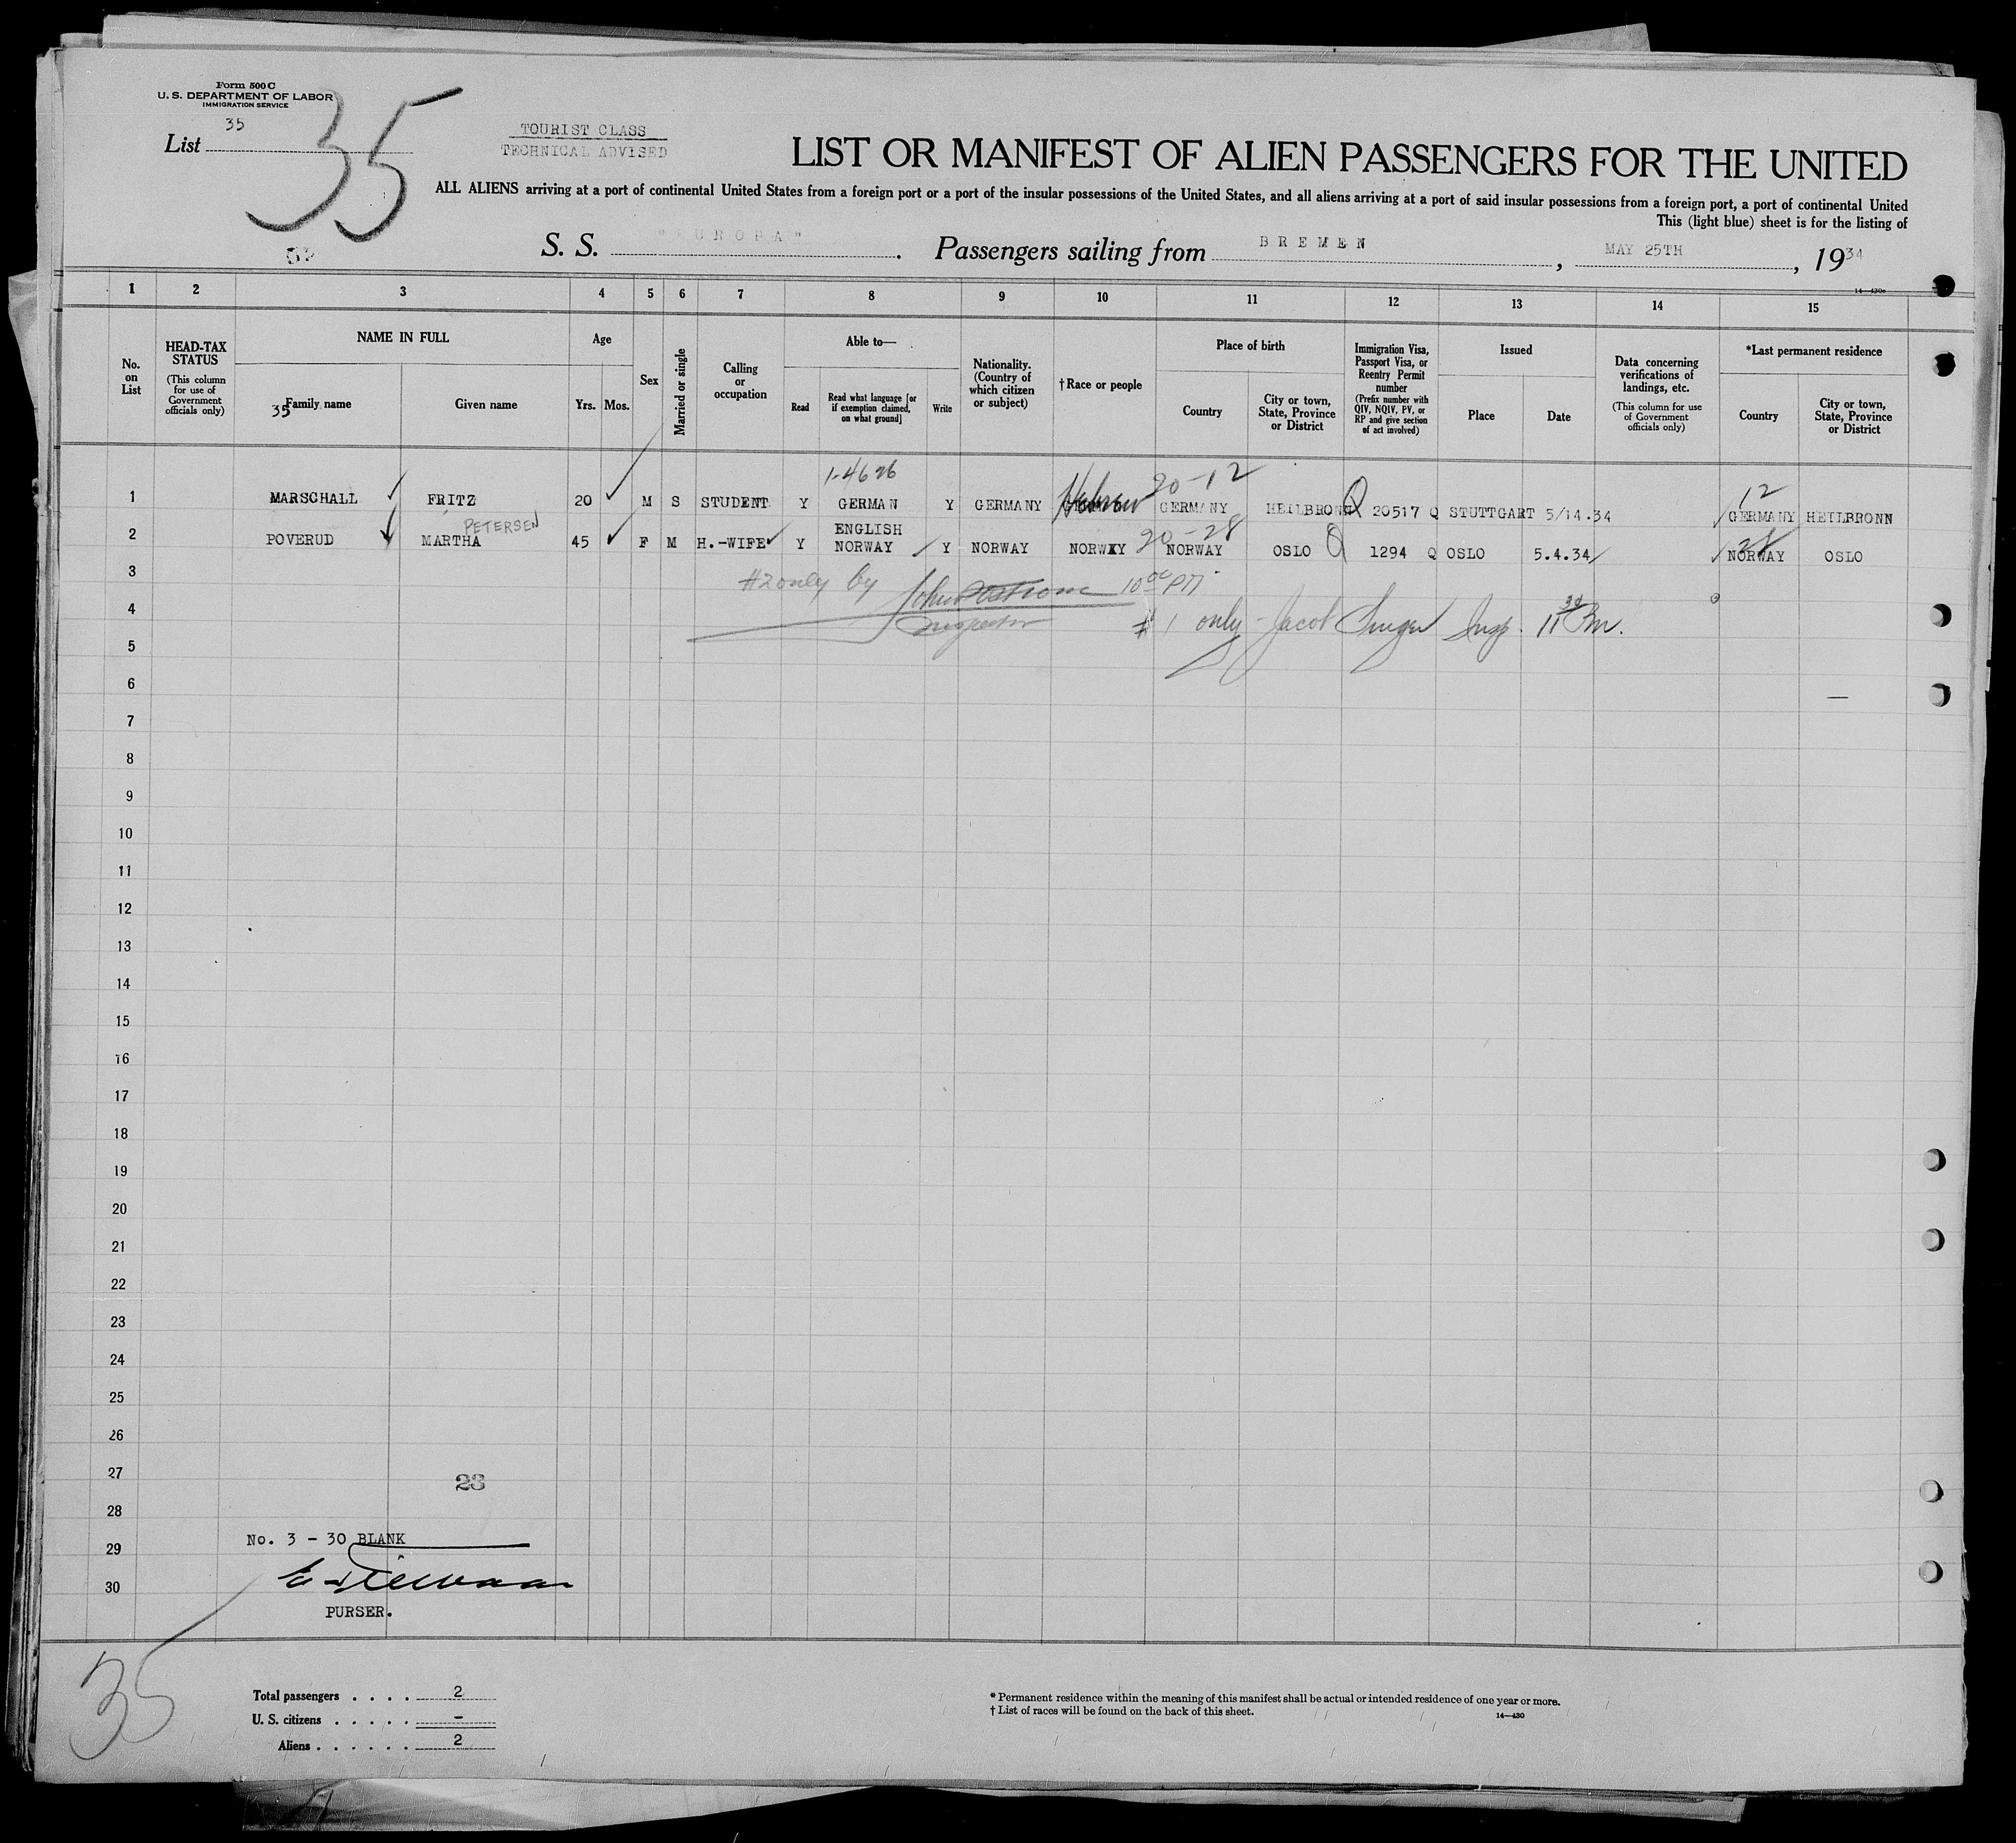 Form 500 C
U. S. DEPARTMENT OF LABOR
IMMIGRATION SERVICE
List 35
35
TOURIST CLASS
TECHNICAL ADVISED
LIST OR MANIFEST OF ALIEN PASSENGERS FOR THE UNITED
ALL ALIENS arriving at a port of continental United States from a foreign port or a port of the insular possessions of the United States, and all aliens arriving at a port of said insular possessions from a foreign port, a port of continental United
This (light blue) sheet is for the listing of
S. S. "EUROPA". Passengers sailing from BREMEN, MAY 25TH, 1934
14—430c
1 2 3 4 5 6 7 8 9 10 11 12 13 14 15
No. on List
HEAD-TAX STATUS
(This column for use of Government officials only)
NAME IN FULL
35
Family name
Given name
Age
Yrs. Mos.
Sex
Married or single
Calling or occupation
Able to—
Read
Read what language [or if exemption claimed, on what ground]
Write
Nationality. (Country of which citizen or subject)
† Race or people
Place of birth
Country
City or town, State, Province or District
Immigration Visa, Passport Visa, or Reentry Permit number
(Prefix number with QIV, NQIV, PV, or RP and give section of act involved)
Issued
Place
Date
Data concerning verifications of landings, etc.
(This column for use of Government officials only)
*Last permanent residence
Country
City or town, State, Province or District
1-4626 20-12 12
1 MARSCHALL FRITZ 20 M S STUDENT Y GERMAN Y GERMANY Hebrew GERMANY HEILBRONN Q 20517 Q STUTTGART 5/14.34 GERMANY HEILBRONN
PETERSEN ENGLISH 20-28 28
2 POVERUD MARTHA 45 F M H.-WIFE Y NORWAY Y NORWAY NORWXY NORWAY OSLO Q 1294 Q OSLO 5.4.34 NORWAY OSLO
3
#2 only by John 10 00 PM
4
Inspector
#1 only - Jacob Singer Insp. 11 30 Pm.
5
6
7
8
9
10
11
12
13
14
15
16
17
18
19
20
21
22
23
24
25
26
27
23
28
No. 3 - 30 BLANK
29
30
PURSER.
35
Total passengers . . . . 2
U. S. citizens . . . . . -
Aliens . . . . . . 2
* Permanent residence within the meaning of this manifest shall be actual or intended residence of one year or more.
† List of races will be found on the back of this sheet.
14—430